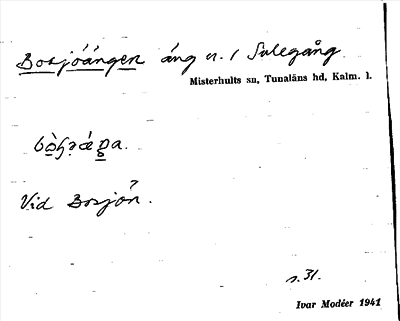 Bosjöängen äng n. / Salegång
Misterhults sn, Tunaläns hd, Kalm. l.
Vid Bosjön.
s. 31.
Ivar Modéer 1941